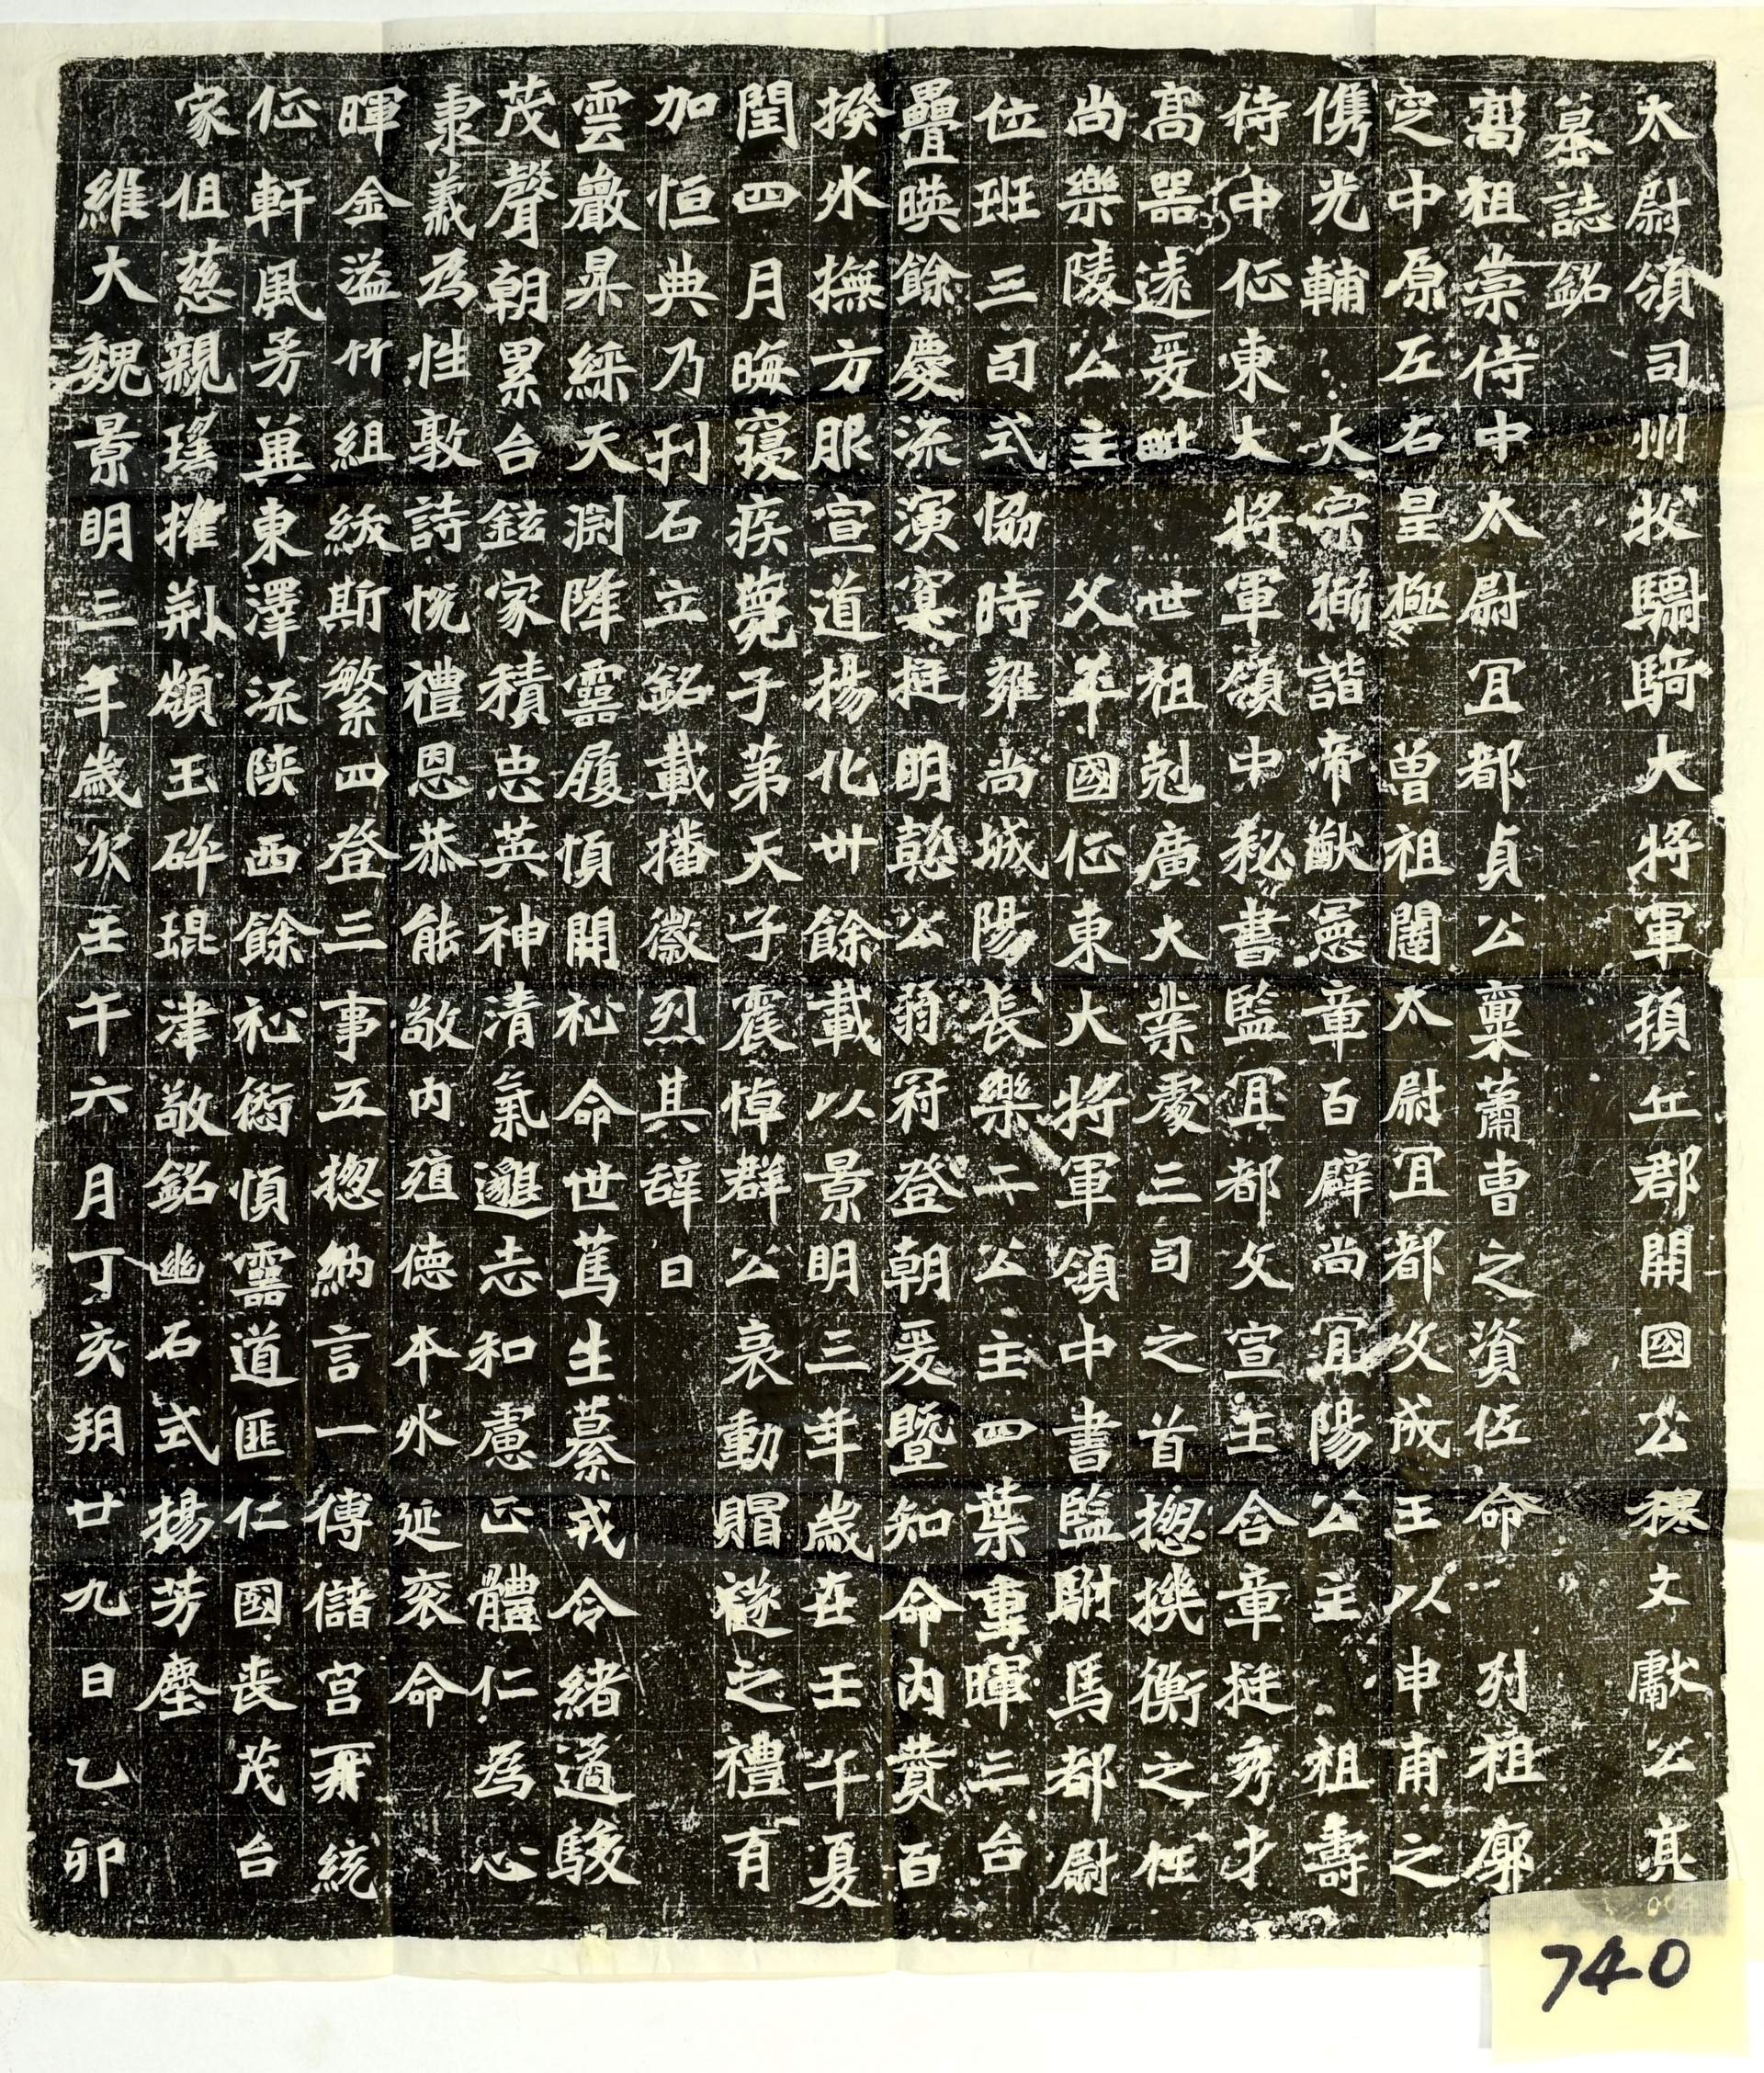 太尉領司州牧驃騎大將軍頓丘郡開國公穆文獻公亮
墓誌銘
高祖崇侍中太尉冝都貞公稟蕭曹之資佐命列祖廓
定中原左右皇極曾祖闥太尉冝都文成王以申甫之
儁光輔大宗彌諧帝猷憲章百辟尚冝陽公主祖壽
侍中征東大將軍領中秘書監冝都文宣王含章挺秀才
高器遠爰毗世祖剋廣大業處三司之首揔機衡之任
尚樂陵公主父平國征東大將軍領中書監駙馬都尉
位班三司式協時雍尚城陽長樂二公主四葉重暉三台
疊暎餘慶流演寔挺明懿公弱冠登朝爰曁知命內贊百
揆外撫方服宣道揚化卅餘載以景明三年歲在壬午夏
閏四月晦寢疾薨于苐天子震悼群公哀動賵襚之禮有
加恒典乃刊石立銘載播徽烈其辞曰
雲巖昇綵天淵降靈履順開祉命世篤生纂戎令緒適駿
茂聲朝累台鉉家積忠英神清氣邈志和慮正體仁為心
秉義為性敦詩悅禮恩恭能敬內殖德本外延衮命
暉金溢竹組紱斯繁四登三事五揔納言一傅儲宮再統
征軒風芳冀東澤流陝西餘祉銜順靈道匪仁國丧茂台
家徂慈親瑤摧荊巔玉碎琨津敬銘幽石式揚芳塵
維大魏景明三年歲次壬午六月丁亥朔廿九日乙卯
740